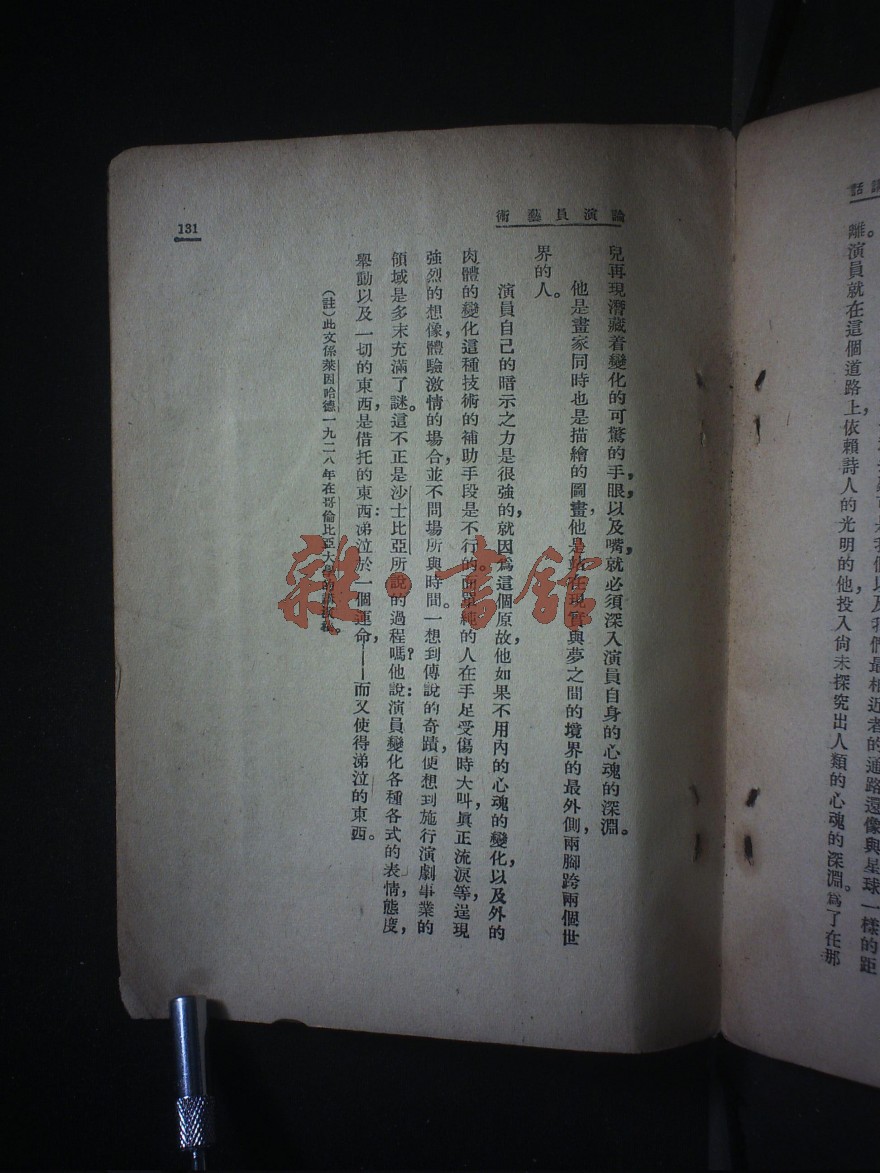 離。演員就在這個道路上依賴詩人的光明的他投入尚未探究出人類的心魂的深淵。爲了在那
論演員藝術
兒再現潛藏着變化的可驚的手,眼,以及嘴,就必須深入演員自身的心魂的深淵。
他是畫家同時也是描繪的圖畫,他是站在現實與夢之間的境界的最外側,兩腳跨兩個世
界的人。
演員自己的暗示之力是很強的,就因爲這個原故他如果不用內的心魂的變化,以及外的
肉體的變化這種技術的補助手段是不行的。而單純的人在手足受傷時大叫,眞正流淚等,逞現
強烈的想像,體驗激情的場合,並不問場所與時間。一想到傳說的奇蹟,便想到施行演劇事業的
領域是多末充滿了謎。這不正是沙士比亞所說的過程嗎?他說:演員變化各種各式的表情,態度,
舉動以及一切的東西,是借托的東西:涕泣於一個運命,——而又使得涕泣的東西。
(註)此文係萊因哈德一九二八年在哥倫比亞大學的講演稿。
131
雜·書館